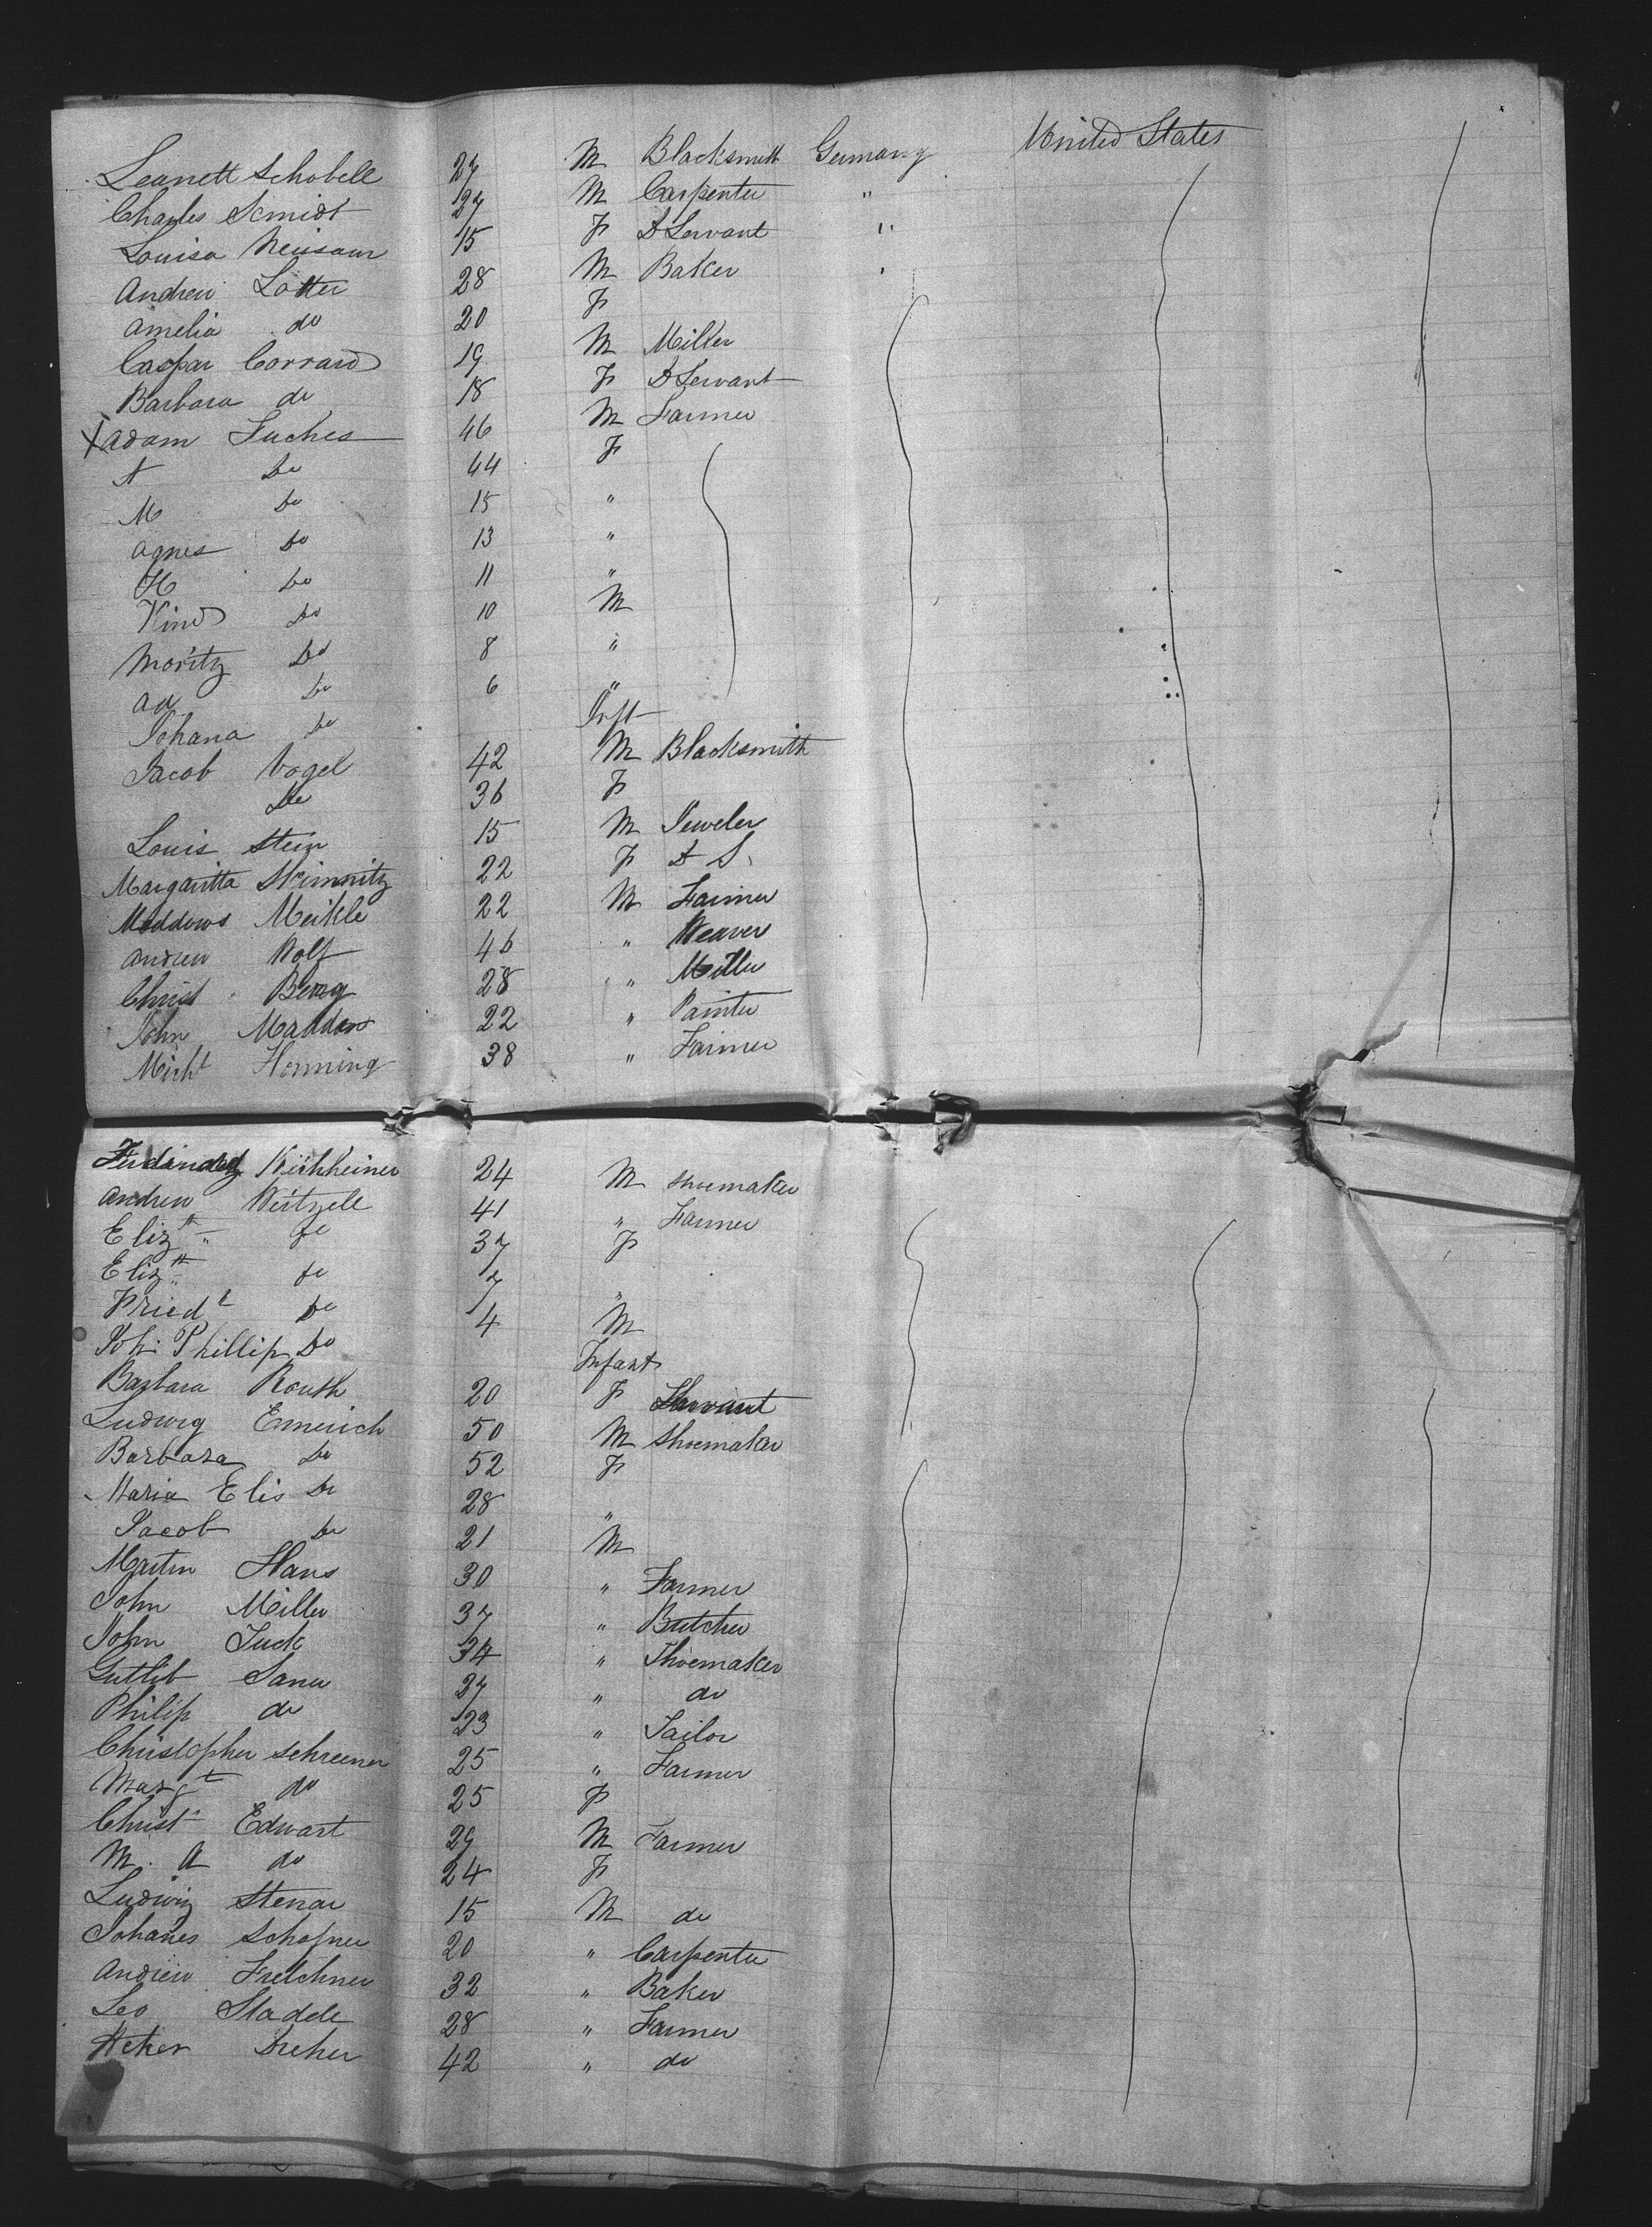 Leanett Schobell 27 M Blacksmith Germany United States
Charles Scmidt 27 M Carpenter "
Louisa 15 F D Servant "
Andrew Lotter 28 M Baker "
Amelia do 20 F
Caspar Corrard 19 M Miller
Barbara do 18 F D Servant
X Adam Fuches 46 M Farmer
A Do 44 F
M Do 15 "
Agnes Do 13 "
H Do 11 "
Kind Do 10 M
Moritz Do 8 "
Ad Do 6 "
Johana Do Inft
Jacob Vogel 42 M Blacksmith
Do 36 F
Louis Stein 15 M Jeweler
Margaritta 22 F D S
Meddows Meikle 22 M Farmer
Andrew Wolf 46 " Weaver
Christ Berag 28 " Miller
John Maddon 22 " Painter
Michl Henning 38 " Farmer
Ferdinand Kirkheiner 24 M Shoemaker
Andrew Weitzell 41 " Farmer
Elizth do 37 F
Elizth do 7 "
Friedk Do 4 M
Joh. Phillip Do Infant
Barbara Routh 20 F Servant
Ludwig Emerich 50 M Shoemaker
Barbara Do 52 F
Maria Elis Do 28 "
Jacob Do 21 M
Martin Hans 30 " Farmer
John Miller 37 " Butcher
John Tuck 34 " Shoemaker
Gutlib Saner 27 " do
Philip do 23 " Tailor
Christopher Schreener 25 " Farmer
Margt do 25 F
Christ Edwart 29 M Farmer
M. A do 24 F
Ludwig Stenar 15 M do
Johanes Schafner 20 " Carpenter
Andrew Fretchner 32 " Baker
Leo Stadele 28 " Farmer
Dreher 42 " do